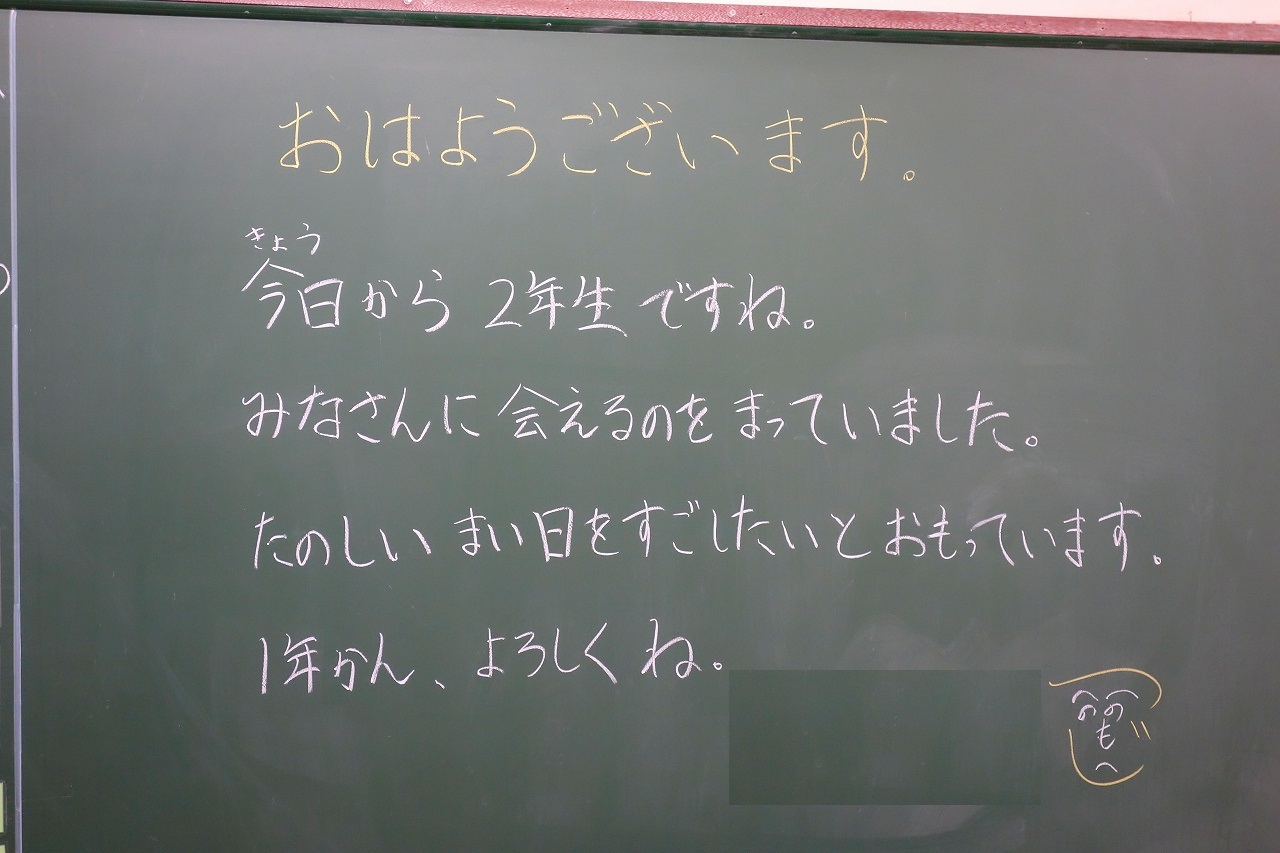 おはようございます。
きょう
今日から 2年生ですね。
みなさんに 会えるのを まっていました。
たのしい まい日をすごしたいと おもっています。
1年かん、よろしく ね。
へへ
のの
も
へ
じ